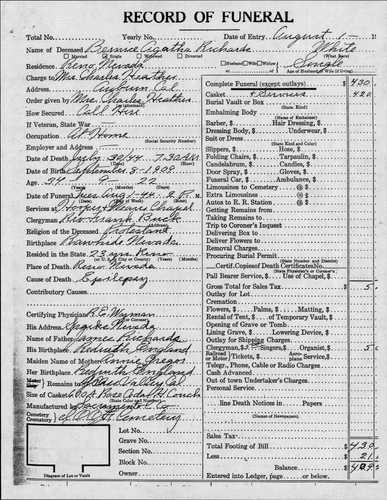 RECORD OF FUNERAL
Total No. Yearly No. Date of Entry August 1 19
Name of Deceased Bernice Agatha Richards White
Married Single Widowed Divorced (What Race)
Residence Reno, Nevada Single
Husband Wife or Widow of Age of Husband or Wife (if living)
Charge to Mrs. Charles Heather
Address Auburn Cal.
Order given by Mrs. Charles Heather
How Secured Call Here
If Veteran, State War
Occupation At Home
(Social Security Number)
Employer and Address
Date of Death July 30/44 7:30 A.M.
Date of Birth September 8-1909
Age 34 22
(Years) (Months) (Days)
Date of Funeral Tues Aug 1-44-2 P.M.
Services at Chapel
Clergyman Rev Frank
Religion of the Deceased Protestant
Birthplace Nevada
Resided in the State 23 yrs Reno
Place of Death Reno Nevada
Cause of Death Epilepsy
Contributory Causes
Certifying Physician R.E. Wyman
His Address Sparks Nevada
Name of Father James Richards
His Birthplace Redruth England
Maiden Name of Mother Annie Gregor
Her Birthplace Redruth England
Size of Casket Couch
(State Color and Number)
Manufactured by Sacramento C. Co.
Cemetery
Crematory I.O.O.F. Cemetery
Lot No.
Grave No.
Section No.
Block No.
Owner
Diagram of Lot or Vault
Complete Funeral (except outlays) $ 430
Casket + Services 420
Burial Vault or Box
(State Kind)
Embalming Body
(Name of Embalmer)
Barber, $ Hair Dressing, $
Dressing Body, $ Underwear, $
Suit or Dress
(State Kind and Color)
Slippers, $ Hose, $
Folding Chairs, $ Tarpaulin, $
Candelabrum, $ Candles, $
Door Spray, $ Gloves, $
Funeral Car, $ Ambulance, $
Limousines to Cemetery @ $
Extra Limousines @ $
Autos to R. R. Station @ $
Getting Remains
Taking Remains
Trip to Coroner's Inquest
Delivering Box to
Deliver Flowers to
Removal Charges
(State Number and District)
Procuring Burial Permit
Cert. Copies of Death Certificate No.
(State Physician's or Coroner's)
Pall Bearer Service, $ Use of Chapel, $
Gross Total for Sales Tax $ 5
Outlay for Lot
Cremation
Flowers, $ Palms, $ Matting, $
Rental of Tent, $ of Temporary Vault, $
Opening of Grave or Tomb
Lining Grave, $ Lowering Device, $
Outlay for Shipping Charges
Clergyman, $ Singers, $ Organist, $ 5
Railroad Tickets, $ Aero Service, $
Telegr., Phone, Cable or Radio Charges
Cash Advanced
Out of town Undertaker's Charges
Personal Service
line Death Notices in Papers
(Names of Newspapers)
Sales Tax
Total Footing of Bill $ 430
Less 21
Balance $ 409
Entered into Ledger, page or below.